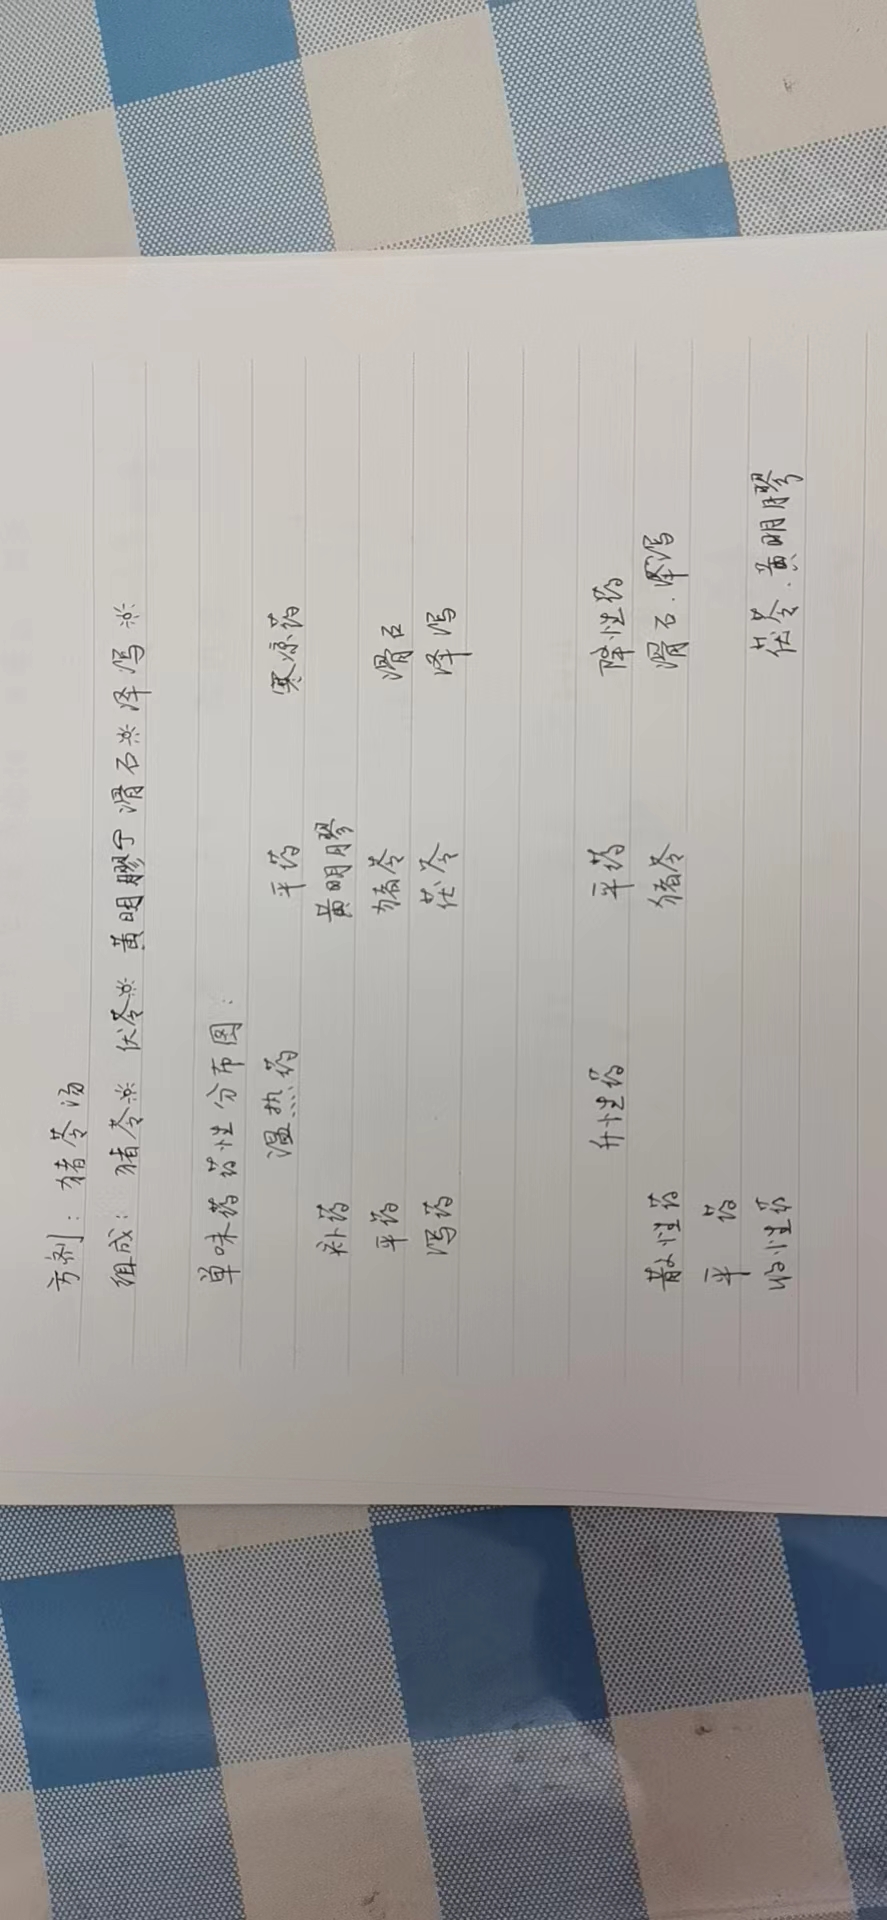 方剂：猪苓汤
组成：猪苓※ 伏苓※ 黄明膠宁 滑石※ 泽泻※
单味药药性分布图：
温热药 平药 寒凉药
补药 黄明膠
平药 猪苓 滑石
泻药 茯苓 泽泻
升性药 平药 降性药
散性药 猪苓 滑石.泽泻
平药
收性药 茯苓.黄明膠